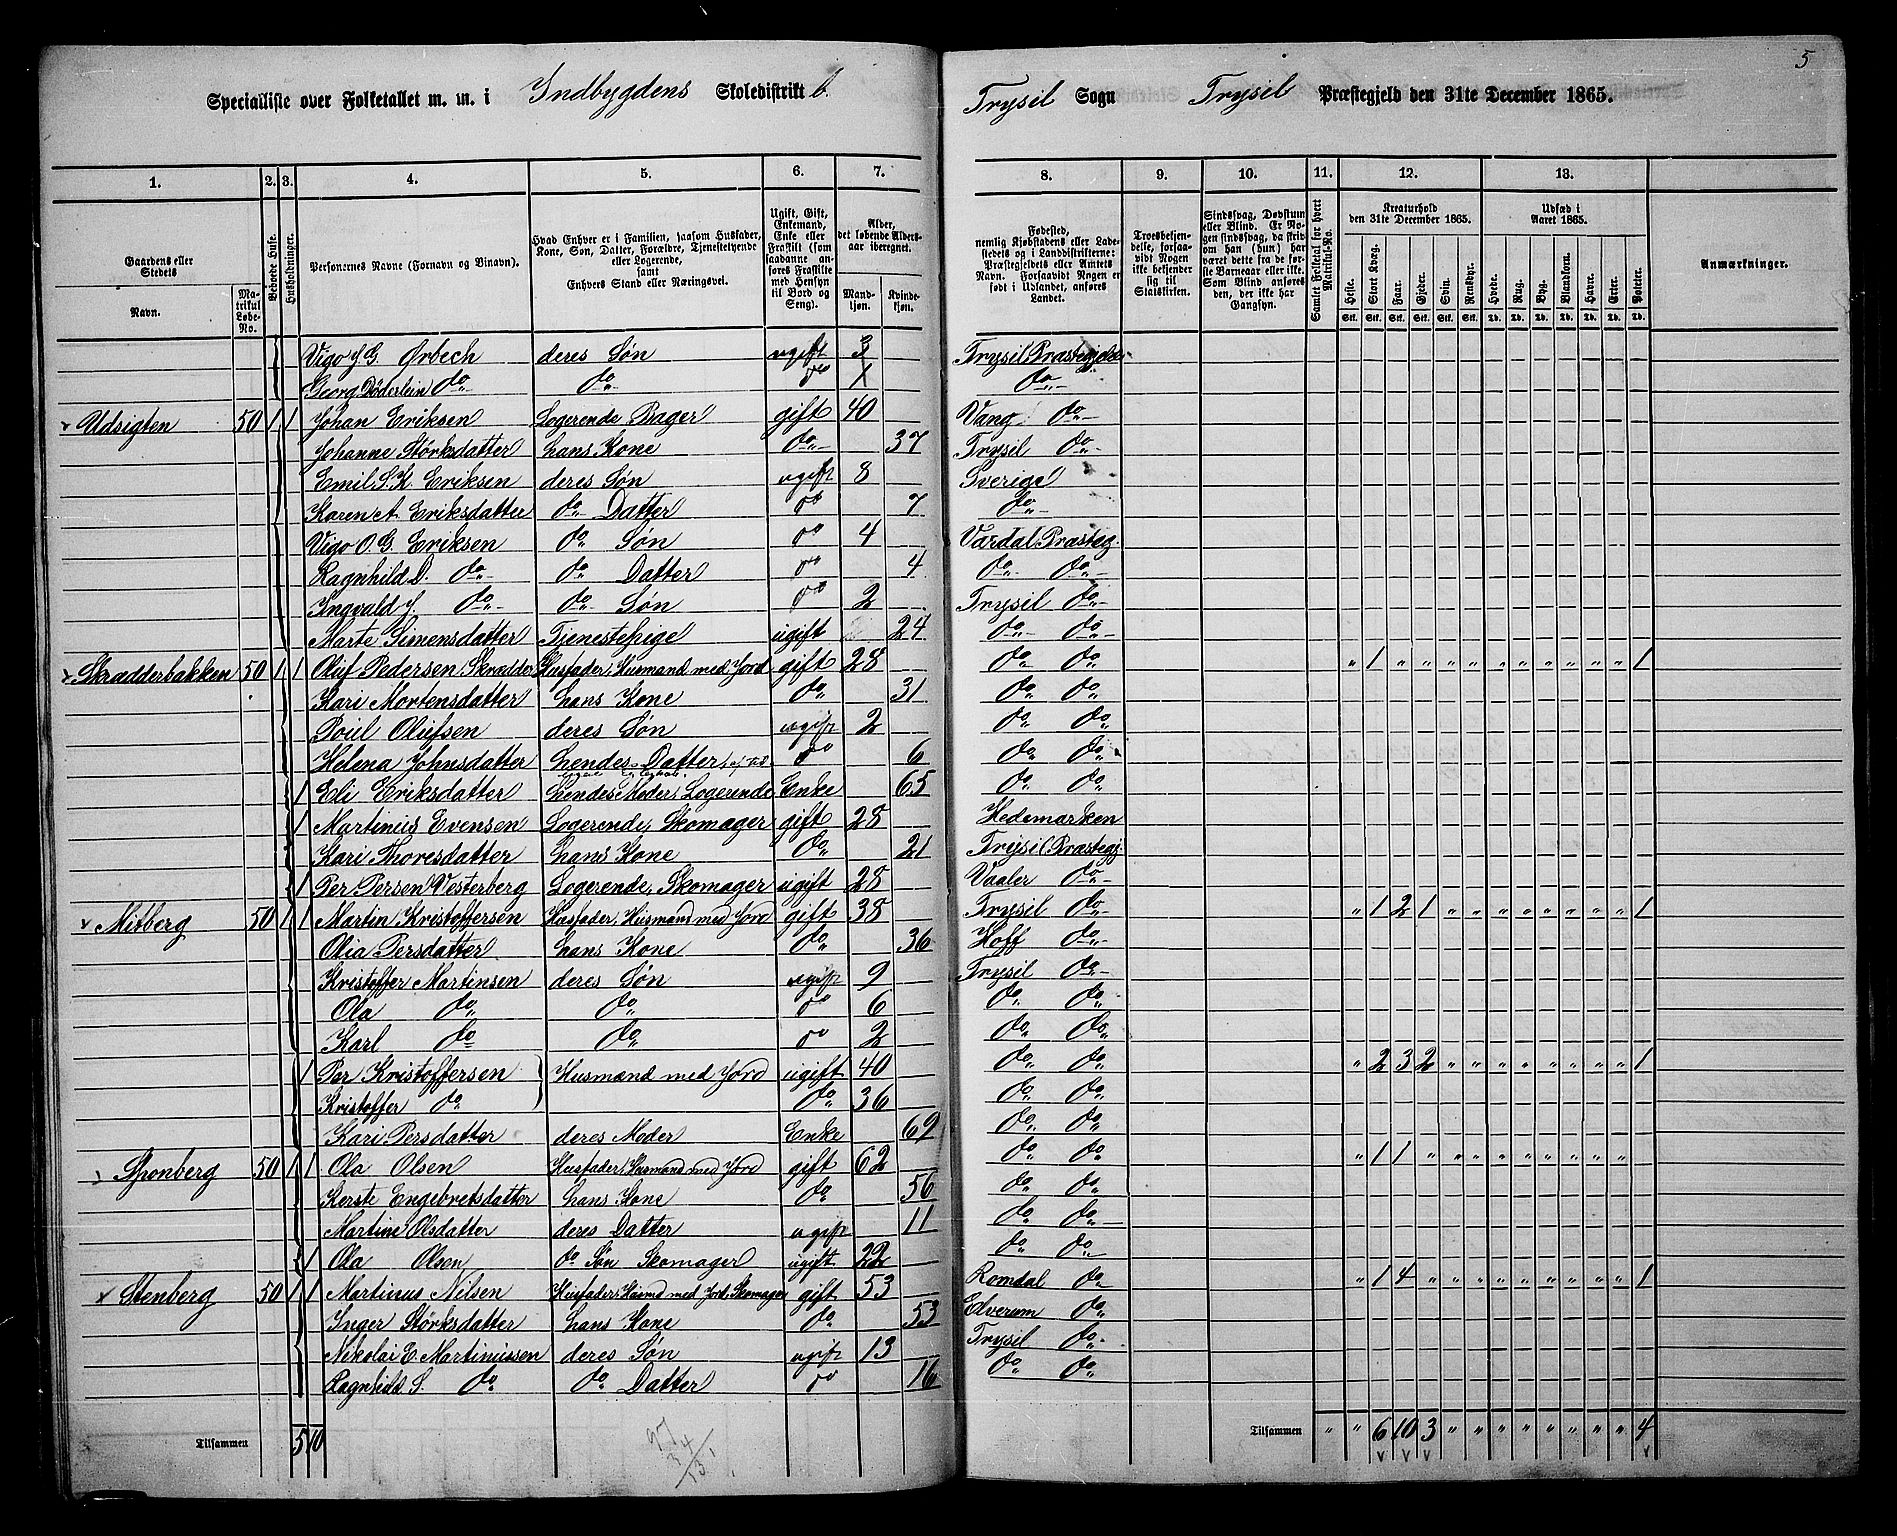 5
Specialliste over Folketallet m. m. i Indbygdens Skoledistrikt 6. Trysil Sogn Trysil Præstegjeld den 31te December 1865.
1. 2. 3. 4. 5. 6. 7. 8. 9. 10. 11. 12. 13.
Gaardens eller Stedets
Navn.
Matrikul Løbe-No.
Beboede Huse.
Husholdninger.
Personernes Navne (Fornavn og Vinavn).
Hvad Enhver er i Familien, saasom Husfader, Kone, Søn, Datter, Forældre, Tjenestetyende eller Logerende, samt Enhvers Stand eller Næringsvei.
Ugift, Gift, Enkemand, Enke eller Fraskilt (som saadanne anføres Fraskilte med Hensyn til Bord og Seng).
Alder, det løbende Aldersaar iberegnet.
Mandkjøn. Kvindekjøn.
Fødested, nemlig Kjøbstadens eller Ladestedets og i Landdistrikterne: Præstegjeldets eller Amtets Navn. Forsaavidt Nogen er født i Udlandet, anføres Landet.
Troesbekjendelse, forsaavidt Nogen ikke bekjender sig til Statskirken.
Sindssvag, Døvstum eller Blind. Er Nogen sindssvag, da skrives om han (hun) har været dette fra de første Barneaar eller ikke. Som Blind anføres den, der ikke har Gangsyn.
Samlet Folketal for hvert Matrikul-No.
Kreaturhold den 31te December 1865.
Heste. Stort Kvæg. Faar. Gjeder. Svin. Rensdyr.
Udsæd i Aaret 1865.
Hvede. Rug. Byg. Blandkorn. Havre. Erter. Poteter.
Anmærkninger.
Vigo J. G. Ørbech deres Søn ugift 3 Trysil Præstegjeld
Georg Döderlein do do do 1 do
Udsigten 50 1 1 Johan Eriksen Logerende Bager gift 40 Vang do
Johanne Størksdatter hans Kone do 37 Trysil do
Emil S. K. Eriksen deres Søn ugift 8 Sverige
Karen A. Eriksdatter do Datter do 7 do
Vigo O. G. Eriksen do Søn do 4 Vardal Præsteg.
Ragnhild D. do do Datter do 4 do do
Ingvald J. do do Søn do 2 Trysil do
Marte Simensdatter Tjenestepige ugift 24 do do
Skrædderbakken 50 1 1 Oluf Pedersen Skrædder Husfader, Husmand med Jord gift 28 do do " 1 " " " " " " " " " " 1
Kari Mortensdatter hans Kone do 31 do do
Poul Olufsen deres Søn ugift 2 do do
Helena Johnsdatter hendes Datter do 6 do do
1 Eli Eriksdatter hendes Moder, Logerende Enke 65 do do
1 Martinus Evensen Logerende, Skomager gift 28 Hedemarken
Kari Thoresdatter hans Kone do 21 Trysil Præstegj.
1 Per Persen Vesterberg Logerende, Skomager ugift 28 Vaaler do
Mitberg 50 1 1 Martin Kristoffersen Husfader, Husmand med Jord gift 38 Trysil do " 1 2 1 " " " " " " " " 1
Olia Persdatter hans Kone do 36 Hoff do
Kristoffer Martinsen deres Søn ugift 9 Trysil do
Ola do do do 6 do do
Karl do do do 2 do do
1 Per Kristoffersen } Husmænd med Jord ugift 40 do do " 2 3 2 " " " " " " " " 1
Kristoffer do do 36 do do
Kari Persdatter deres Moder Enke 69 do do
Sponberg 50 1 1 Ola Olsen Husfader, Husmand med Jord gift 62 do do " 1 1 " " " " " " " " " "
Kerste Engebretsdatter hans Kone do 56 do do
Martine Olsdatter deres Datter ugift 11 do do
1 Ola Olsen do Søn Skomager ugift 22 do do
Stenberg 50 1 1 Martinus Nilsen Husfader, Husmd med Jord, Skomager gift 53 Romdal do " 1 4 " " " " " " " " " 1
Inger Størksdatter hans Kone do 53 Elverum do
Nikolai E. Martinussen deres Søn ugift 13 Trysil do
Ragnhild S. do do Datter do 16 do do
Tilsammen 5 10 Tilsammen " " 6 10 3 " " " " " " " " 4